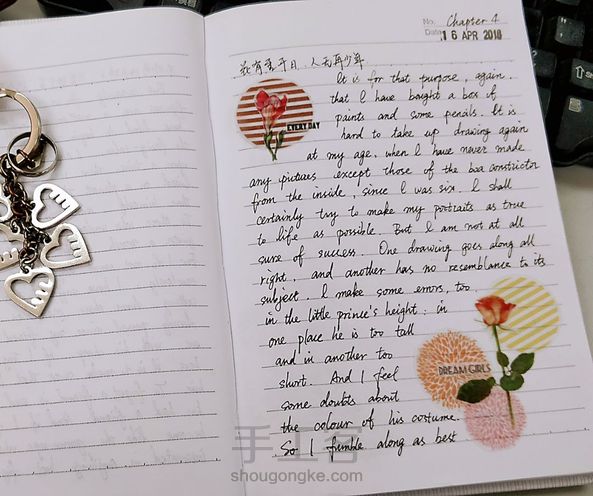 No. Chapter 4
Date. 16 APR 2018
花有重开日,人无再少年
It is for that purpose, again,
that I have bought a box of
paints and some pencils. It is
EVERYDAY
hard to take up drawing again
at my age, when I have never made
any pictures except those of the boa constrictor
from the inside, since I was six. I shall
certainly try to make my portraits as true
to life as possible. But I am not at all
sure of success. One drawing goes along all
right, and another has no resemblance to its
subject. I make some errors, too,
in the little prince's height: in
one place he is too tall
and in another too
short. And I feel
DREAM GIRLS
some doubts about
the colour of his costume.
So I fumble along as best
手工客
shougongke.com